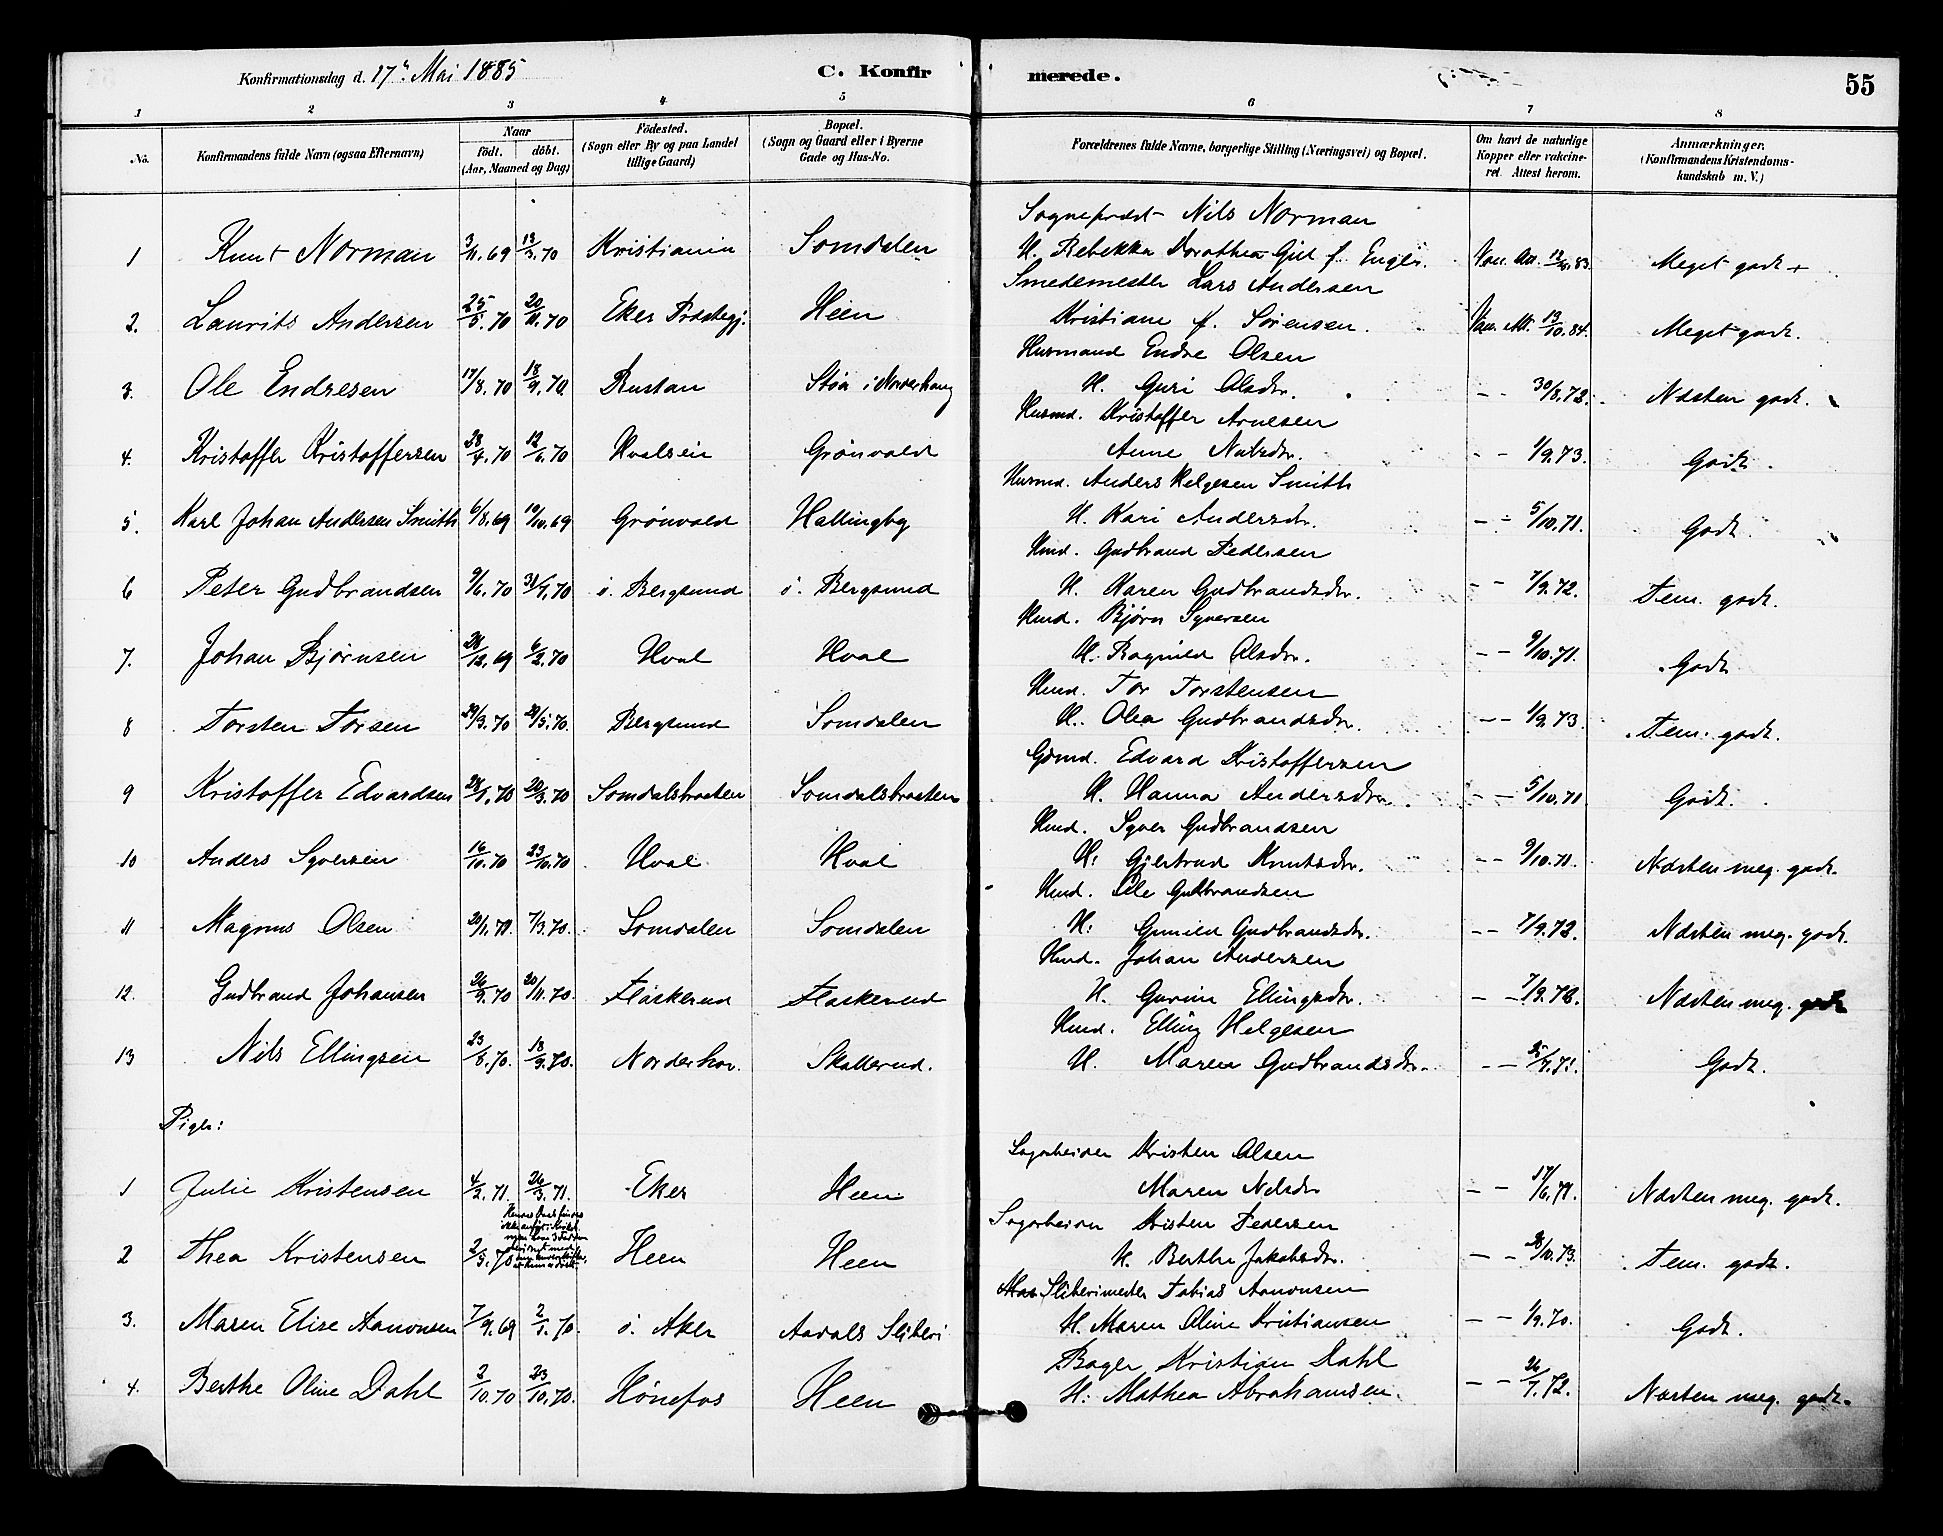 Konfirmationsdag d. 17de Mai 1885
C. Konfirmerede.
55
1 2 3 4 5 6 7 8
No. Konfirmandens fulde Navn (ogsaa Efternavn) Naar født. døbt. (Aar, Maaned og Dag) Fødested. (Sogn eller By og paa Landet tillige Gaard) Bopæl. (Sogn og Gaard eller i Byerne Gade og Hus-No. Forældrenes fulde Navne, borgerlige Stilling (Næringsvei) og Bopæl. Om havt de naturlige Kopper eller vakcineret. Attest herom. Anmærkninger. (Konfirmandens Kristendomskundskab m. V.)
Sogneprest Nils Norman
1 Knut Norman 3/11.69 13/3.70 Kristiania Somdalen H. Rebekka Dorothea Gill f. Engls. Vac. Att. 83. Meget godt +
Smedemester Lars Andersen
2. Laurits Andersen 25/5.70 20/11.70 Eker Præstegj. Heen Kristiane f. Sørensen. Vac. Att. 13/10.84. Meget godt.
Husmand Endre Olsen
3. Ole Endresen 17/8.70 18/9.70 Rustan Støa i Norderhaug H. Guri Olsdr. - - 30/8.72. Næsten godt.
Husmd. Kristoffer Arnesen
4. Kristoffer Kristoffersen 28/4.70 12/6.70 Hvalseie Grønvold Anne Nilsdr. - - 1/9.73. Godt.
Husmd. Anders Helgesen Smith
5. Karl Johan Andersen Smith 6/8.69 10/10.69 Grønvold Hallingby H. Kari Andersdr. - - 5/10.71. Godt.
Hmd. Gudbrand Pedersen
6 Peter Gudbrandsen 9/6.70 31/7.70 ö. Bergsund ö. Bergsund H. Karen Gudbrandsdr. - - 7/9.72. Tem. godt.
Hmd. Bjørn Syversen
7. Johan Bjørnsen 28/12.69 6/2.70 Hval Hval H. Ragnild Olsdr. - - 9/10.71. Godt
Hmd. Tor Torstensen
8 Torsten Torsen 29/3.70 29/5.70. Bergsund Somdalen H. Olea Gudbrandsdr. - - 1/9.73. Tem. godt.
Gdmd. Edvard Kristoffersen
9 Kristoffer Edvardsen 28/1.70 20/3.70 Somdalsbraaten Somdalsbraaten H. Hanna Andersdr. - - 5/10.71 Godt.
Hmd. Syver Gudbrandsen
10 Anders Syversen 16/10.70 23/10.70 Hval Hval H. Gjertrud Knutsdr. - - 9/10.71. Næsten meg. godt.
Hmd. Ole Gudbrandsen
11 Magnus Olsen 20/1.70. 7/3.70. Somdalen Somdalen H. Gunild Gudbrandsdr. - - 7/9.72. Næsten meg. godt.
Hmd. Johan Andersen
12. Gudbrand Johansen 26/9.70 20/11.70. Flaskerud Flaskerud H. Gurine Ellingsdr. - - 7/9.72. Næsten meg. godt
Hmd. Elling Helgesen
13 Nils Ellingsen 23/8.70. 18/9.70. Norderhov. Skollerud. H. Maren Gudbrandsdr. - - Godt.
Piger:
Sagarbeider Kristen Olsen
1 Julie Kristensen 4/2.71. 26/3.71. Eker Heen Maren Nilsdr - - 17/6.71. Næsten meg. godt.
Sagarbeider Kristen Pedersen
2 Thea Kristensen 2/5.70 Heen Heen H. Berthe Jakobsdr. - - 28/10.73. Tem. godt.
Sliberimester Tobias Aanonsen
3. Maren Elise Aanonsen 7/9.69 2/1.70. ö. Aker Aadals Sliberi H. Maren Oline Kristiansen - - 1/9.70. Godt.
Bager Kristian Dahl
4. Berthe Oline Dahl 2/10.70 23/10.70. Hønefos Heen H. Mathea Abrahamsen. - - 26/7.72. Næsten meg. godt.